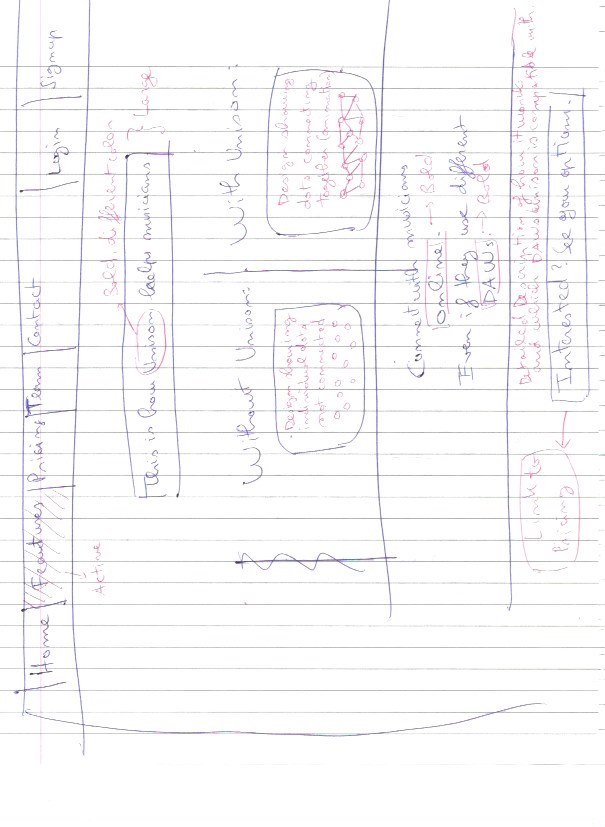 Home | Features | Pricing | Team | Contact | Login | Signup
Active
Bold, different color
This is how Unison helps musicians
} Large
Without Unison:
With Unison:
Design showing
individual dots
not connected
Design showing
dots connecting
together (animation)
Connect with musicians
Online! → Bold
Even if they use different
DAWs. → Bold
Detailed Description of how it works
and which DAWs Unison is compatible with.
Interested? See your options.
Link to
Pricing